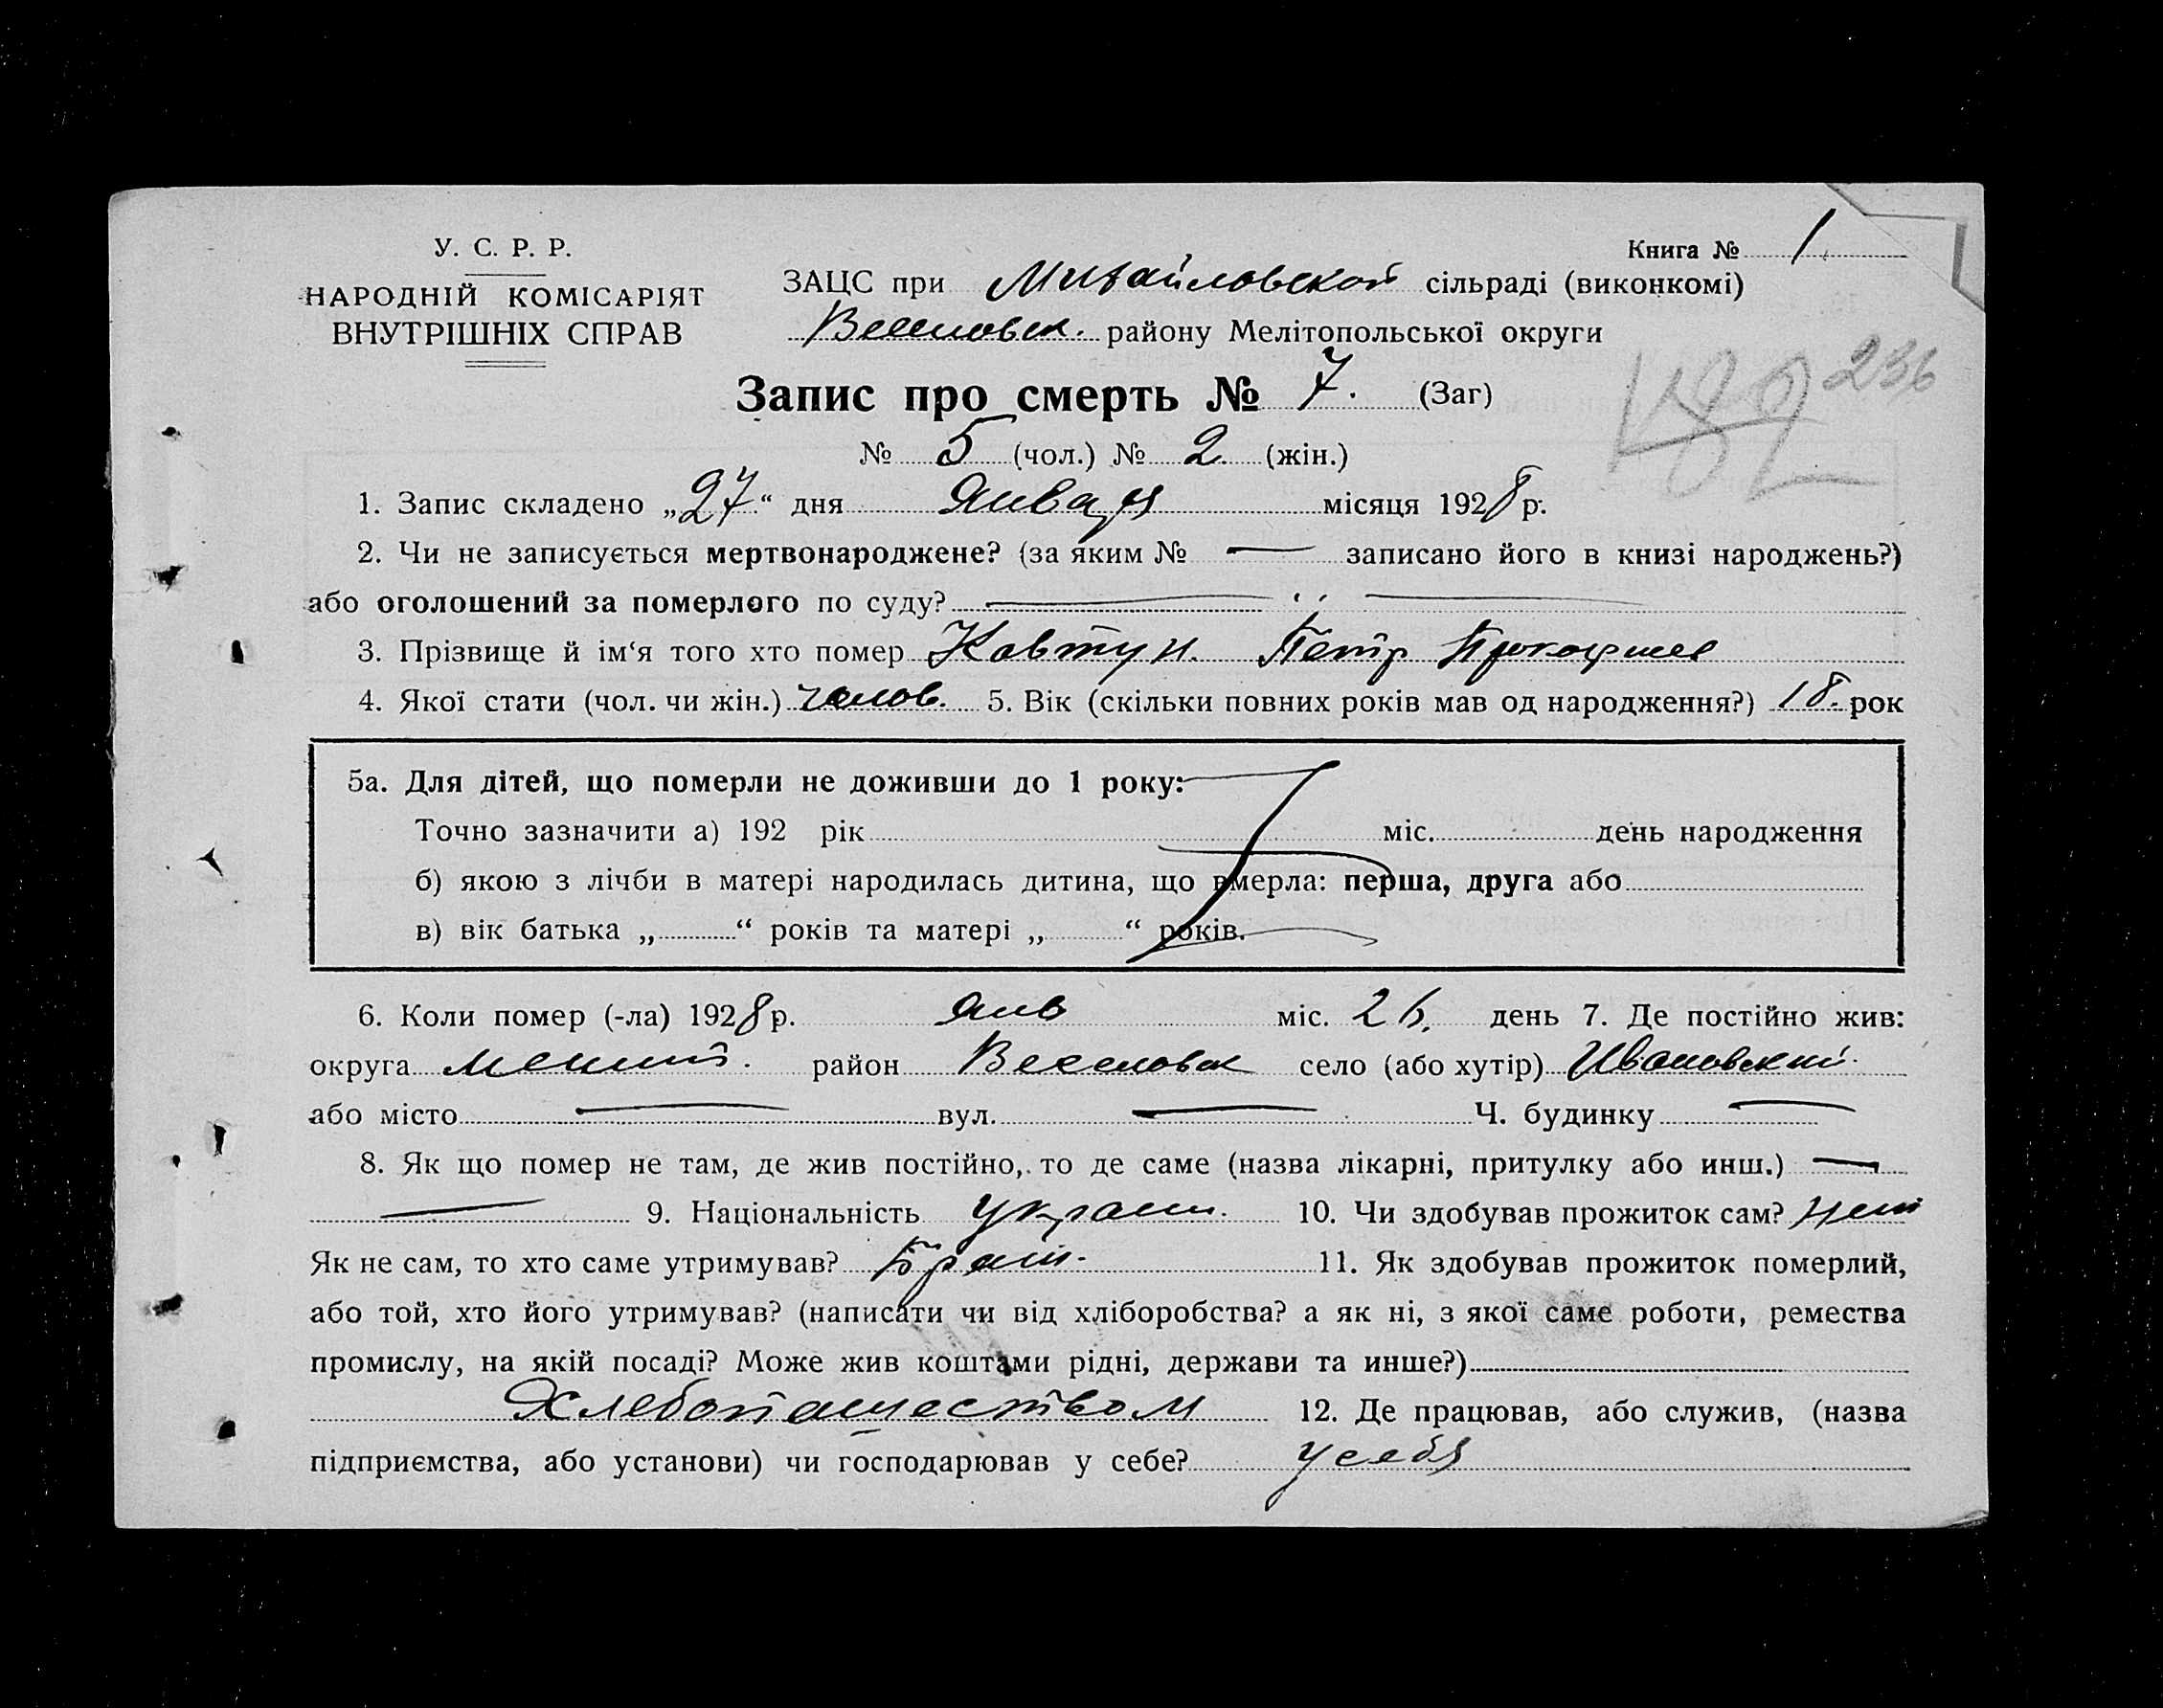 У. С. Р. Р.
НАРОДНІЙ КОМІСАРІЯТ
ВНУТРІШНІХ СПРАВ
Книга № 1
ЗАЦС при Михайловской сільраді (виконкомі)
Веселовск. району Мелітопольської округи
236
182
Запис про смерть № 7. (Заг)
№ 5 (чол.) № 2. (жін.)
1. Запис складено „27“ дня Января місяця 1928 р.
2. Чи не записується мертвонароджене? (за яким № — записано його в книзі народжень?)
або оголошений за померлого по суду? — —
3. Прізвище й ім‘я того хто помер Ковтун Петр Прокофиев
4. Якої стати (чол. чи жін.) челов. 5. Вік (скільки повних років мав од народження?) 18. рок
5а. Для дітей, що померли не доживши до 1 року:
Точно зазначити а) 192 рік міс. день народження
б) якою з лічби в матері народилась дитина, що вмерла: перша, друга або
в) вік батька „ “ років та матері „ “ років.
6. Коли помер (-ла) 1928 р. Янв міс. 26. день 7. Де постійно жив:
округа Мелит. район Веселовск село (або хутір) Ивановский
або місто — вул. — Ч. будинку —
8. Як що помер не там, де жив постійно, то де саме (назва лікарні, притулку або инш.) —
— 9. Національність Украин. 10. Чи здобував прожиток сам? Нет
Як не сам, то хто саме утримував? Брат. 11. Як здобував прожиток померлий,
або той, хто його утримував? (написати чи від хліборобства? а як ні, з якої саме роботи, ремества
промислу, на якій посаді? Може жив коштами рідні, держави та инше?)
Хлебопашеством 12. Де працював, або служив, (назва
підприємства, або установи) чи господарював у себе? у себя